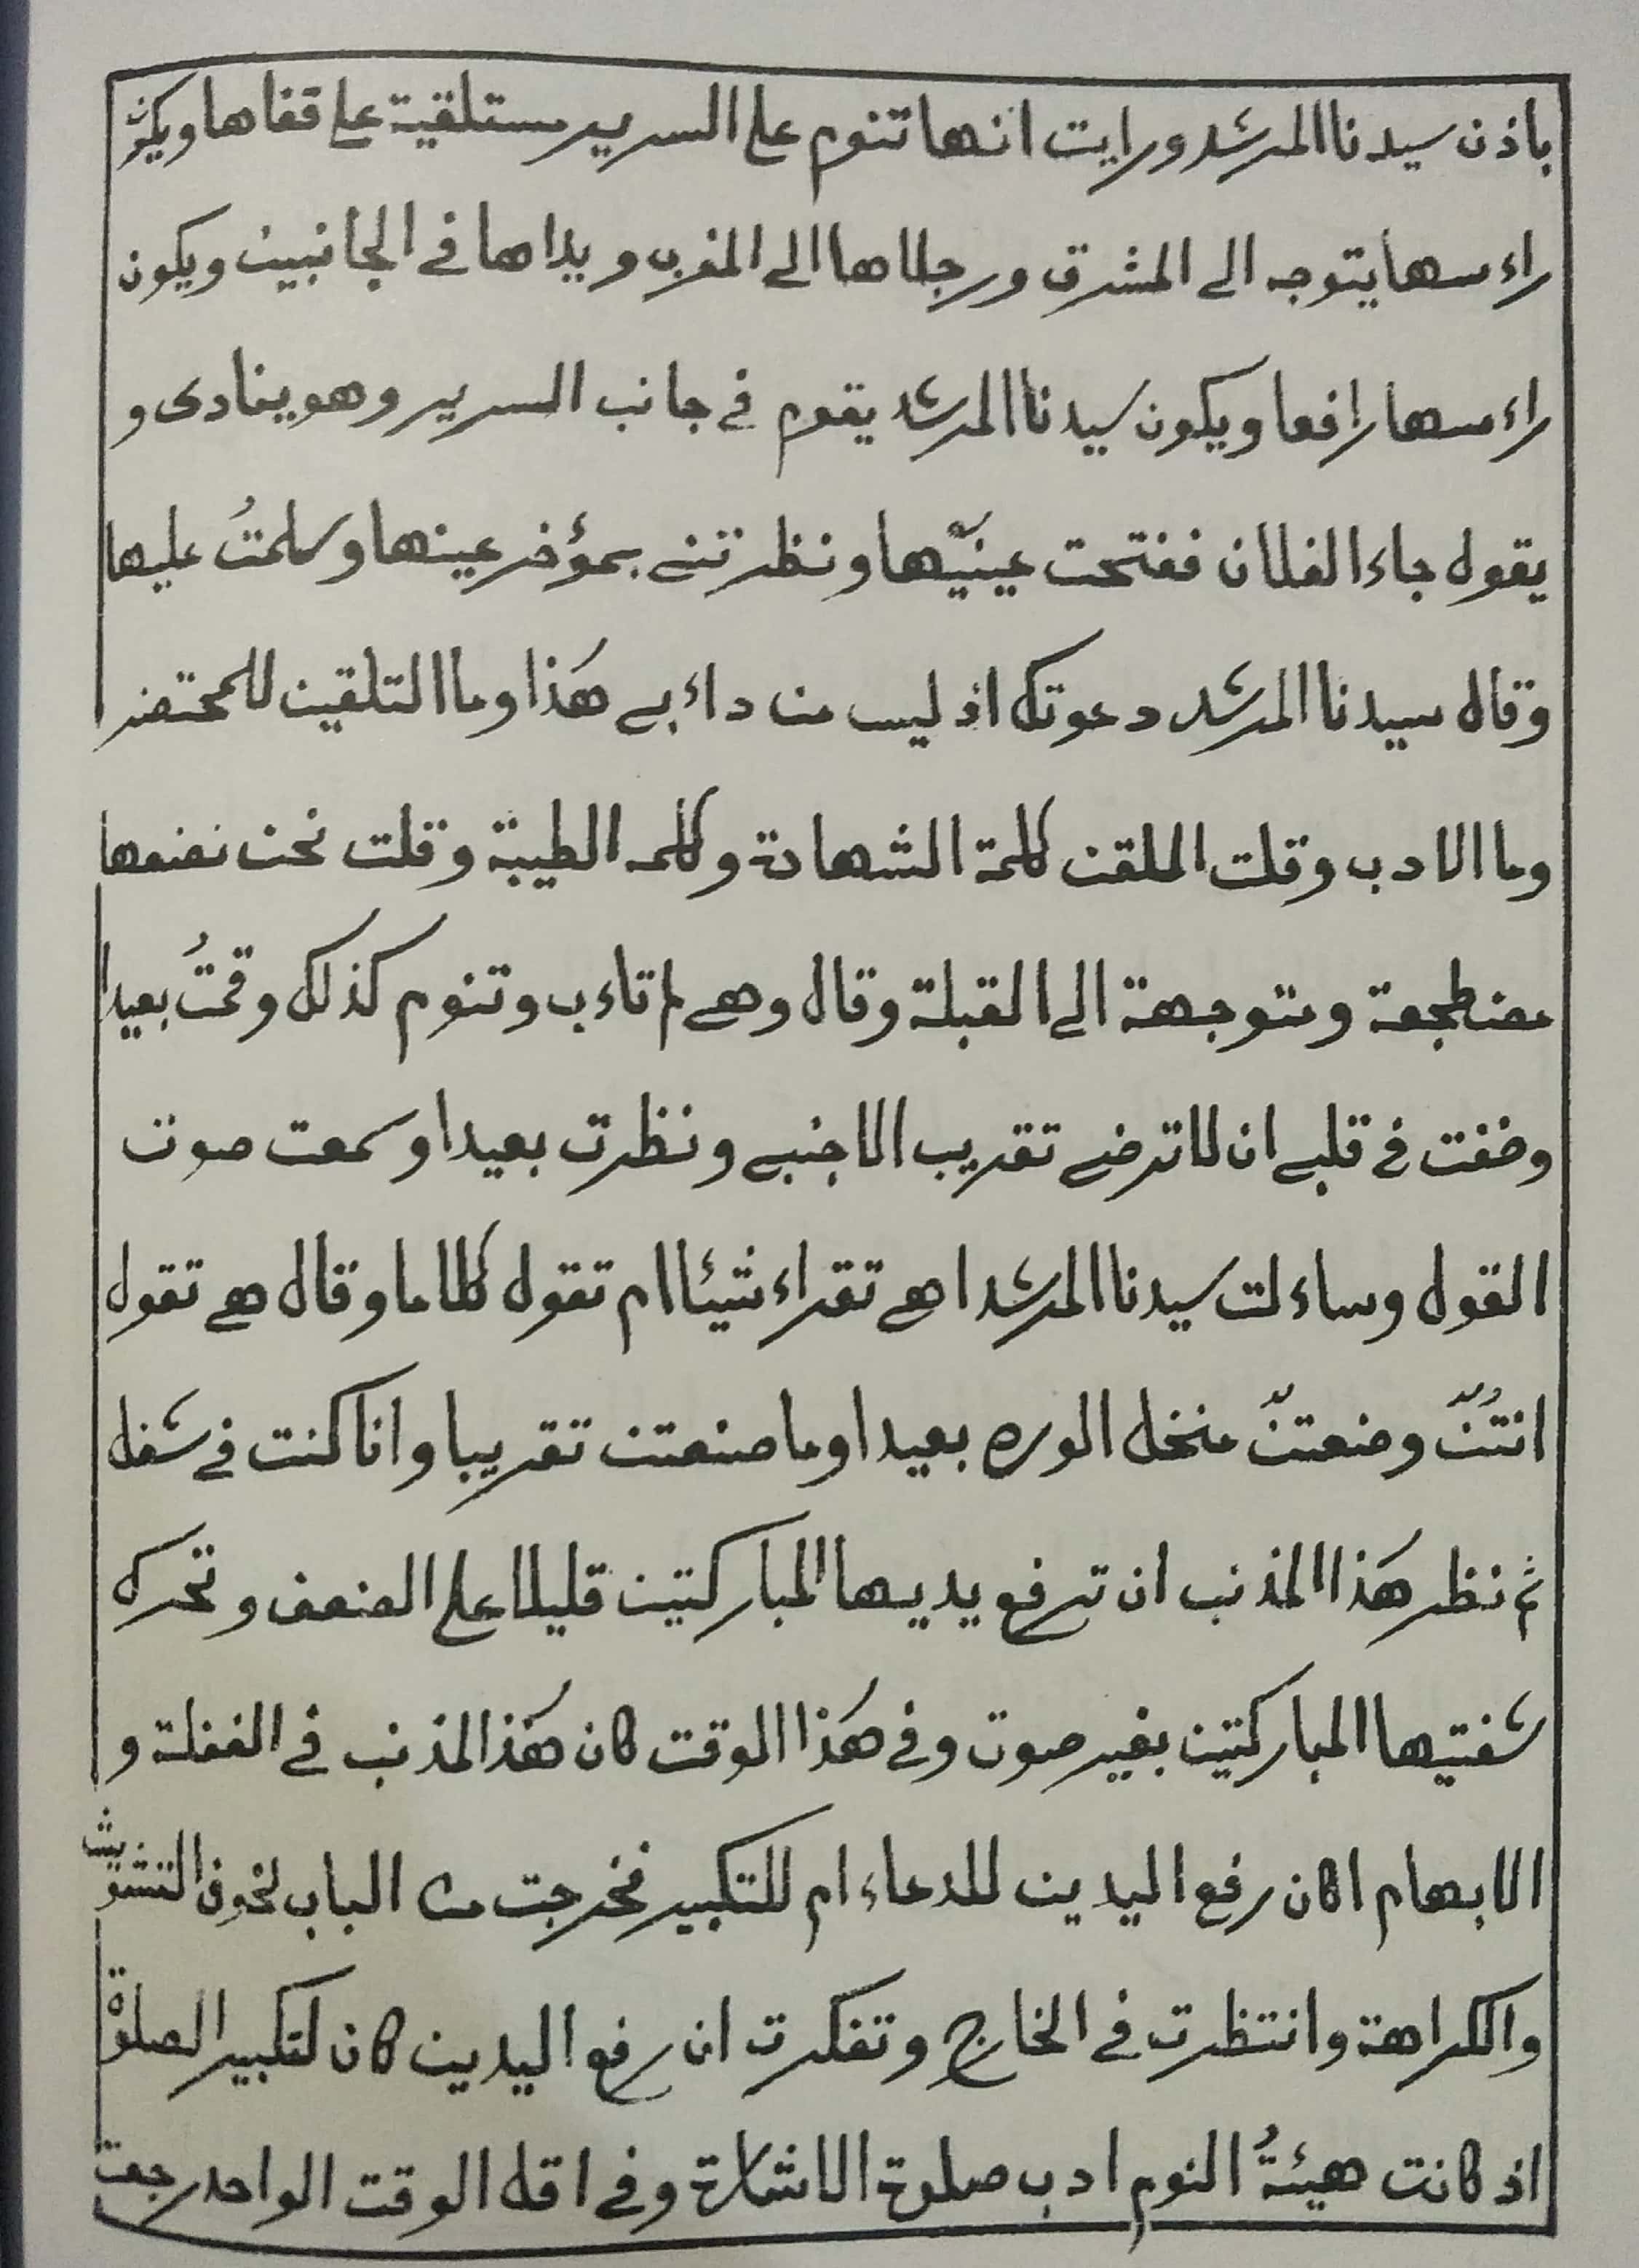 باذن سيدنا المرشد ورايت انها تنوم على السرير مستلقية على قفاها ويكون
راءسها يتوجه الى المشرق ورجلاها الى المغرب ويداها في الجانبين ويكون
راءسها رافعا ويكون سيدنا المرشد يقوم في جانب السرير وهو ينادى و
يقول جاء الفلان ففتحت عينيها ونظرتني بمؤخر عينها وسلمتُ عليها
وقال سيدنا المرشد دعوتك اذ ليس من داءبي هٰذا وما التلقين للمحتضر
وما الادب وقلت الملقن كلمة الشهادة وكلمه الطيبة وقلت نحن نضعها
مضطجعة ومتوجهة الى القبلة وقال وهي لم تاءب وتنوم كذلك وقمتُ بعيدا
وخفت في قلبي ان لا ترضى تقريب الاجنبي ونظرت بعيدا وسمعت صوت
القول وساءلت سيدنا المرشد اهي تقراء شيئا ام تقول كلاما وقال هي تقول
انتُنّ وضعتنّ منخل الوره بعيدا وما صنعتن تقريبا وانا كنت في شغل
ثم نظر هٰذا المذنب ان ترفع يديها المباركتين قليلا على الضعف وتحرك
شفتيها المباركتين بغير صوت وفي هٰذا الوقت كان هٰذا المذنب في الغفلة و
الابهام اكان رفع اليدين للدعاء ام للتكبير فخرجت من الباب لخوف التشويش
والكراهة وانتظرت في الخارج وتفكرت ان رفع اليدين كان لتكبير الصلوة
اذ كانت هيئةُ النوم ادب صلوة الاشارة وفي اقل الوقت الواحد رجعت